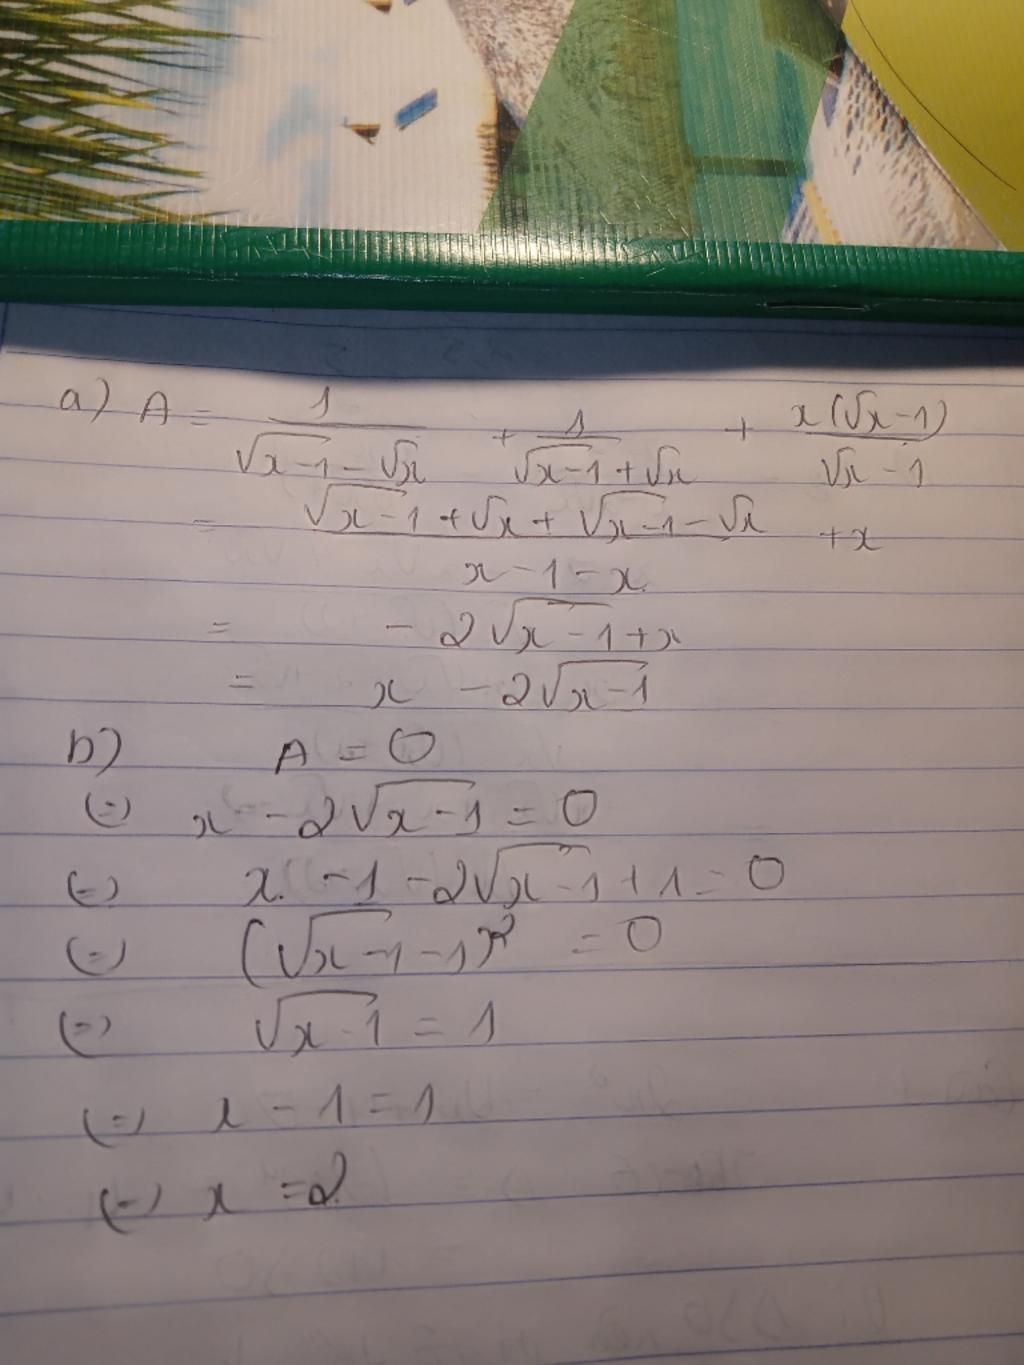 a) A = 1/(√(x-1) - √x) + 1/(√(x-1) + √x) + x(√x-1)/(√x - 1)
= (√(x-1) + √x + √(x-1) - √x)/(x-1-x) + x
= -2√(x-1) + x
= x - 2√(x-1)
b) A = 0
(=) x - 2√(x-1) = 0
(=) x - 1 - 2√(x-1) + 1 = 0
(=) (√(x-1) - 1)² = 0
(=) √(x-1) = 1
(=) x - 1 = 1
(=) x = 2